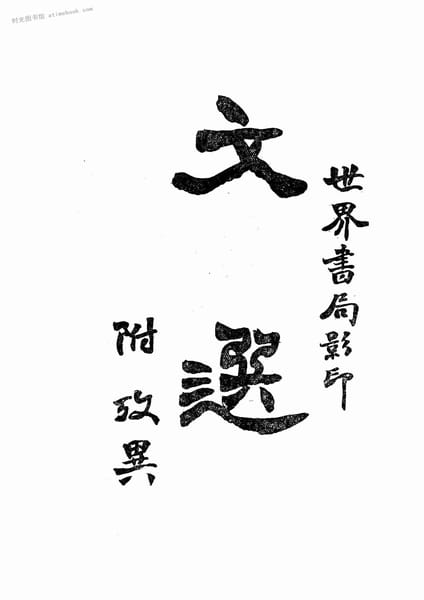 时光图书馆 atimebook.com
世界書局影印
文選
附攷異